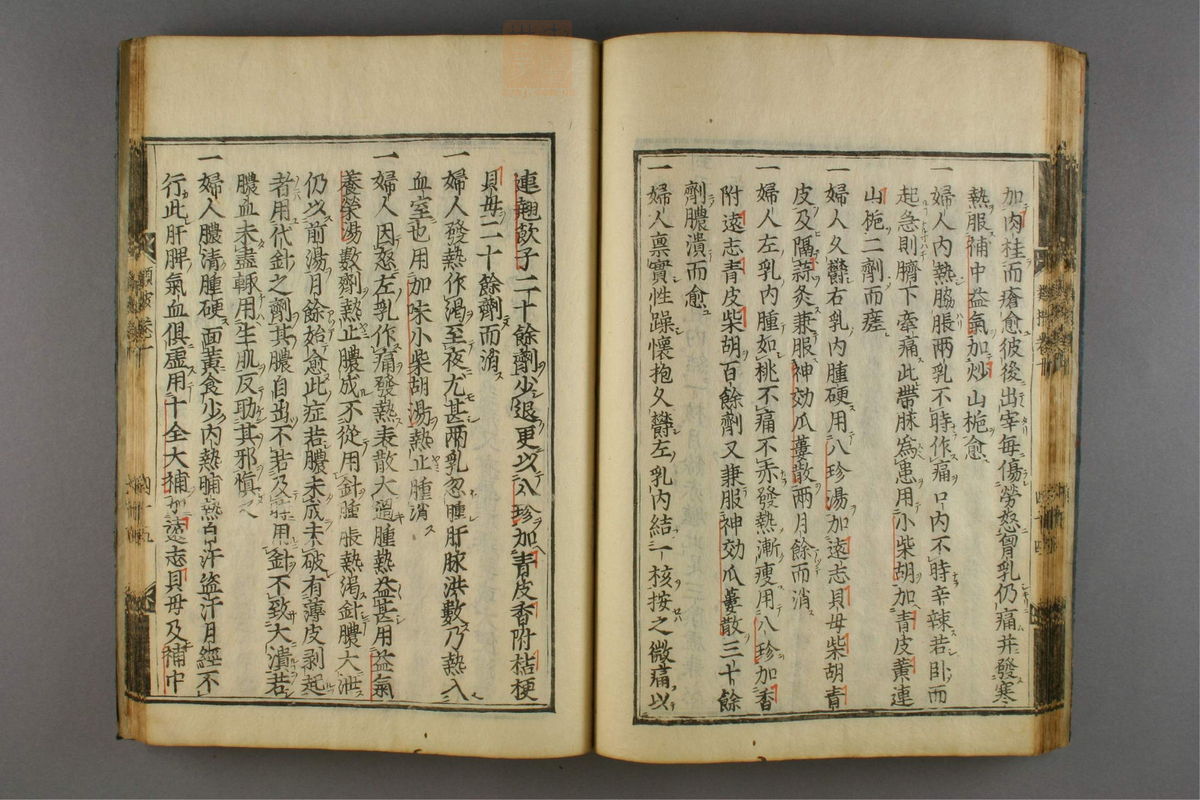 加肉桂而瘡愈彼後出宰每傷勞怒胷乳仍痛并發寒
熱服補中益氣加炒山梔愈
一婦人內熱脇脹兩乳不時作痛口內不時辛辣若卧而
起急則臍下牽痛此帶脉爲患用小柴胡加青皮黃連
山梔二劑而瘥
一婦人久欝右乳內腫硬用八珍湯加遠志貝母柴胡青
皮及隔蒜灸兼服神効瓜蔞散兩月餘而消
一婦人左乳內腫如桃不痛不赤發熱漸瘦用八珍加香
附遠志青皮柴胡百餘劑又兼服神効瓜蔞散三十餘
劑膿潰而愈
一婦人禀實性躁懷抱久欝左乳內結一核按之微痛以
連翹飲子二十餘劑少退更以八珍加青皮香附桔梗
貝母二十餘劑而消
一婦人發熱作渴至夜尤甚兩乳忽腫肝脉洪數乃熱入
血室也用加味小柴胡湯熱止腫消
一婦人因怒左乳作痛發熱表散太過腫熱益甚用益氣
養榮湯數劑熱止膿成不從用針腫脹熱渴針膿大泄
仍以前湯月餘始愈此症若膿未成未破有薄皮剥起
者用代針之劑其膿自出不若及時用針不致大潰若
膿血未盡輙用生肌反助其邪愼之
一婦人膿清腫硬面黃食少內熱晡熱自汗盜汗月經不
行此肝脾氣血俱虛用十全大補加遠志貝母及補中